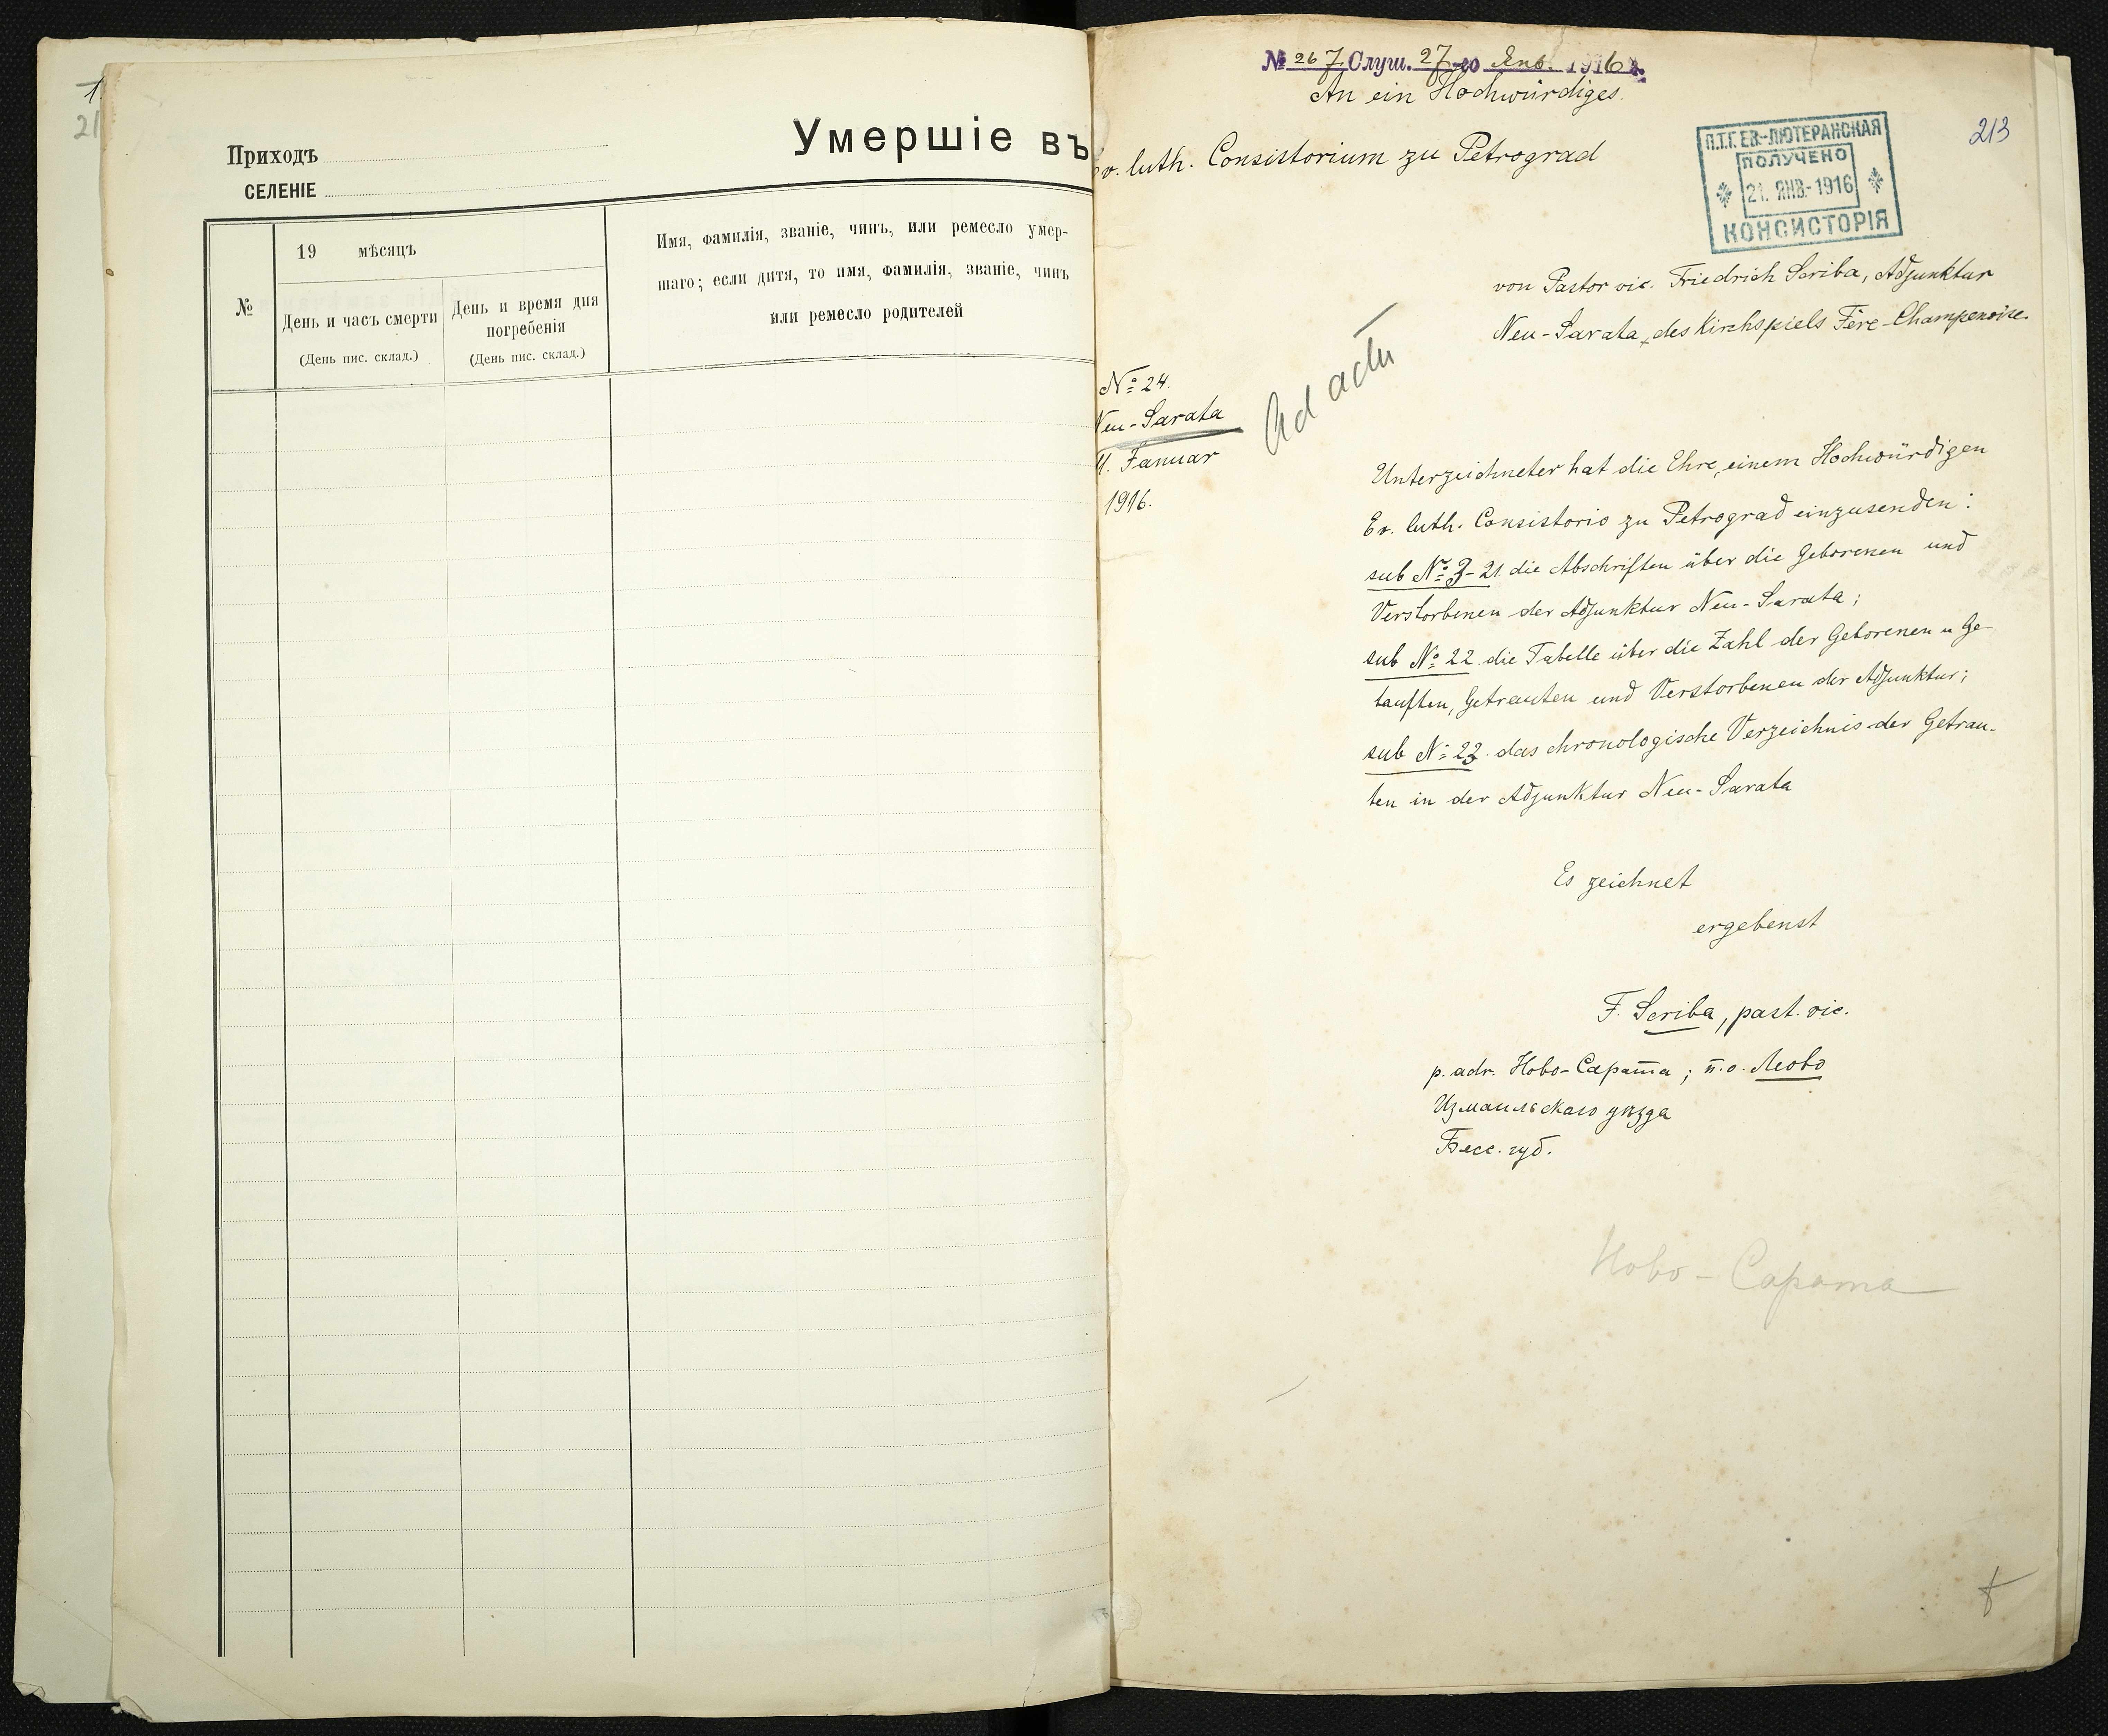 Приходъ
СЕЛЕНІЕ
Умершіе въ
№
19 мѣсяцъ
День и часъ смерти
(День пис. склад.)
День и время дня
погребенія
(День пис. склад.)
Имя, фамилія, званіе, чинъ, или ремесло умер-
шаго; если дитя, то имя, фамилія, званіе, чинъ
или ремесло родителей
№ 267 Слуш. 27-го Янв. 1916 г.
An ein Hochwürdiges
Ev. luth. Consistorium zu Petrograd
П.Т.Г. ЕВ.-ЛЮТЕРАНСКАЯ
ПОЛУЧЕНО
21. ЯНВ.-1916
КОНСИСТОРІЯ
213
von Pastor vic. Friedrich Scriba, Adjunktur
Neu-Sarata, des Kirchspiels Fère-Champenoise.
Ad acta
№ 24.
Neu-Sarata
Januar
1916.
Unterzeichneter hat die Ehre, einem Hochwürdigen
Ev. luth. Consistorio zu Petrograd einzusenden:
sub № 3-21. die Abschriften über die Geborenen und
Verstorbenen der Adjunktur Neu-Sarata;
sub № 22 die Tabelle über die Zahl der Geborenen u Ge-
tauften, Getrauten und Verstorbenen der Adjunktur;
sub № 23. das chronologische Verzeichnis der Getrau-
ten in der Adjunktur Neu-Sarata
Es zeichnet
ergebenst
F. Scriba, past. vic.
p. adr. Ново-Сарата; п.о. Леово
Измаильскаго уѣзда
Бесс. губ.
Ново-Сарата